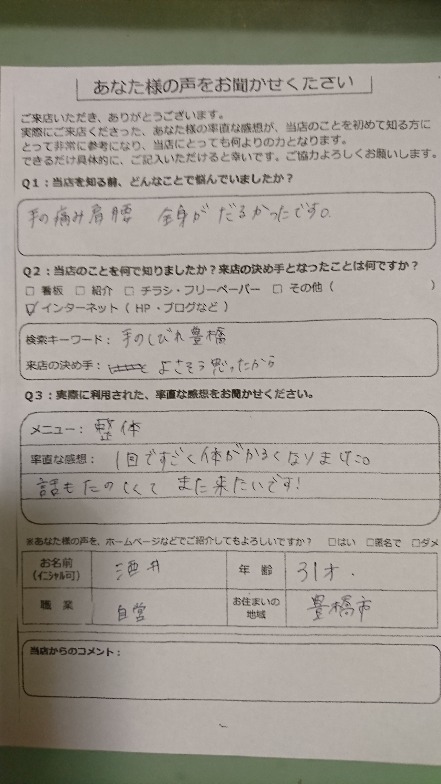 あなた様の声をお聞かせください
ご来店いただき、ありがとうございます。
実際にご来店くださった、あなた様の率直な感想が、当店のことを初めて知る方に
とって非常に参考になり、当店にとっても何よりの力となります。
できるだけ具体的に、ご記入いただけると幸いです。ご協力よろしくお願いします。
Q1：当店を知る前、どんなことで悩んでいましたか？
手の痛み肩腰 全身が だるかったです。
Q2：当店のことを何で知りましたか？来店の決め手となったことは何ですか？
□ 看板 □ 紹介 □ チラシ・フリーペーパー □ その他（ ）
☑ インターネット（ HP・ブログなど ）
検索キーワード： 手のしびれ 豊橋
来店の決め手： よさそう 思ったから
Q3：実際に利用された、率直な感想をお聞かせください。
メニュー： 整体
率直な感想： 1回ですごく体がかるくなりました。
話もたのしくて また来たいです!
※あなた様の声を、ホームページなどでご紹介してもよろしいですか？ □はい □匿名で □ダメ
お名前（イニシャル可） 酒井 年齢 31才.
職業 自営 お住まいの地域 豊橋市
当店からのコメント：